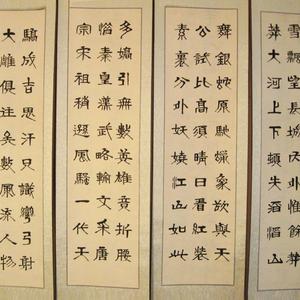 雪飄望長城內外惟餘莽
莽大河上下頓失滔滔山
舞銀蛇原馳蠟象欲與天
公試比高須晴日看紅裝
素裹分外妖嬈江山如此
多嬌引無數英雄競折腰
惜秦皇漢武略輸文采唐
宗宋祖稍遜風騷一代天
驕成吉思汗只識彎弓射
大雕俱往矣數風流人物